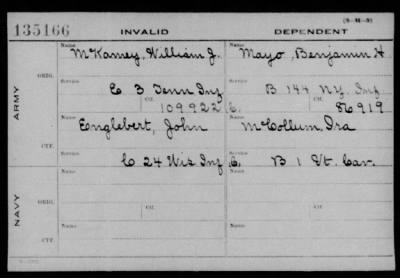 135166 INVALID DEPENDENT
Name McKamey, William J. Name Mayo, Benjamin H
ORIG. Service C 3 Tenn Inf Service B 144 N.Y. Inf
Ctf. 109922 C. Ctf. 86919
ARMY
Name Englebert, John Name McCollum, Ira
CTF. Service C 24 Wis Inf C. Service B 1 Vt. Cav.
NAVY
Name Name
ORIG. Service Ctf. Service Ctf.
Name Name
CTF. Service Service